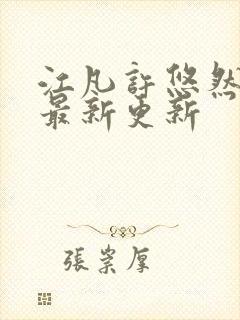 江凡許悠然
最新更新
張崇厚